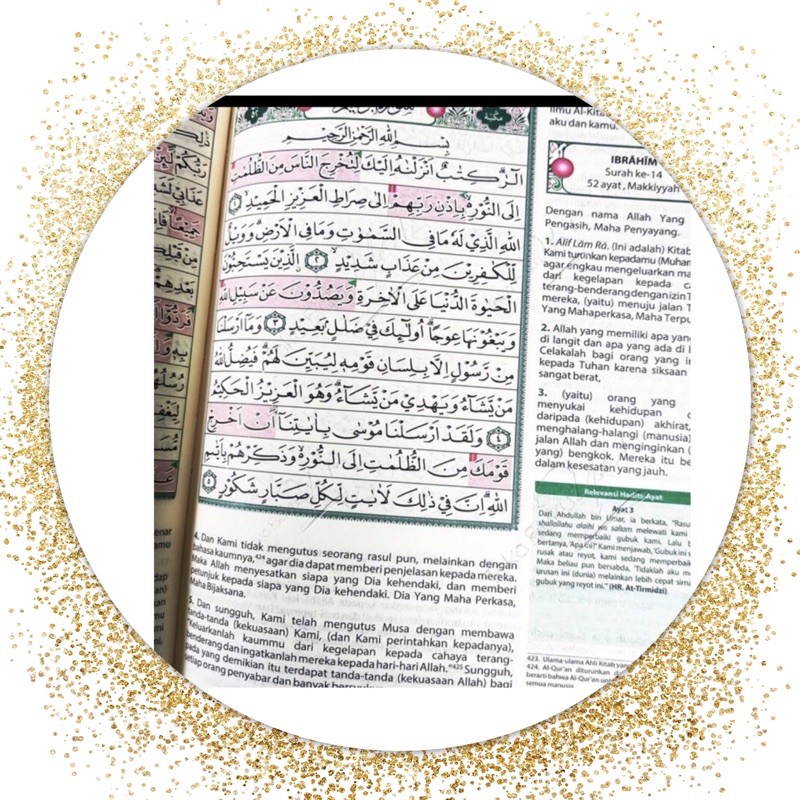 سورة إبراهيم
مكية
بِسْمِ اللّٰهِ الرَّحْمٰنِ الرَّحِيْمِ
الۤرٰ ۗ كِتٰبٌ اَنْزَلْنٰهُ اِلَيْكَ لِتُخْرِجَ النَّاسَ مِنَ الظُّلُمٰتِ
اِلَى النُّوْرِ ەۙ بِاِذْنِ رَبِّهِمْ اِلٰى صِرَاطِ الْعَزِيْزِ الْحَمِيْدِۙ ١
اللّٰهِ الَّذِيْ لَهٗ مَا فِى السَّمٰوٰتِ وَمَا فِى الْاَرْضِۗ وَوَيْلٌ
لِّلْكٰفِرِيْنَ مِنْ عَذَابٍ شَدِيْدٍۙ ٢ الَّذِيْنَ يَسْتَحِبُّوْنَ
الْحَيٰوةَ الدُّنْيَا عَلَى الْاٰخِرَةِ وَيَصُدُّوْنَ عَنْ سَبِيْلِ اللّٰهِ
وَيَبْغُوْنَهَا عِوَجًاۗ اُولٰۤىِٕكَ فِيْ ضَلٰلٍۢ بَعِيْدٍ ٣ وَمَآ اَرْسَلْنَا
مِنْ رَّسُوْلٍ اِلَّا بِلِسَانِ قَوْمِهٖ لِيُبَيِّنَ لَهُمْۗ فَيُضِلُّ اللّٰهُ
مَنْ يَّشَاۤءُ وَيَهْدِيْ مَنْ يَّشَاۤءُۗ وَهُوَ الْعَزِيْزُ الْحَكِيْمُ
٤ وَلَقَدْ اَرْسَلْنَا مُوْسٰى بِاٰيٰتِنَآ اَنْ اَخْرِجْ
قَوْمَكَ مِنَ الظُّلُمٰتِ اِلَى النُّوْرِ ەۙ وَذَكِّرْهُمْ بِاَيّٰىمِ
اللّٰهِۗ اِنَّ فِيْ ذٰلِكَ لَاٰيٰتٍ لِّكُلِّ صَبَّارٍ شَكُوْرٍ ٥
4. Dan Kami tidak mengutus seorang rasul pun, melainkan dengan
bahasa kaumnya,⁴²⁴ agar dia dapat memberi penjelasan kepada mereka.
Maka Allah menyesatkan siapa yang Dia kehendaki, dan memberi
petunjuk kepada siapa yang Dia kehendaki. Dia Yang Maha Perkasa,
Maha Bijaksana.
5. Dan sungguh, Kami telah mengutus Musa dengan membawa
tanda-tanda (kekuasaan) Kami, (dan Kami perintahkan kepadanya),
"Keluarkanlah kaummu dari kegelapan kepada cahaya terang-
benderang dan ingatkanlah mereka kepada hari-hari Allah."⁴²⁵ Sungguh,
pada yang demikian itu terdapat tanda-tanda (kekuasaan Allah) bagi
setiap orang penyabar dan banyak
ilmu Al-Kitab
aku dan kamu.
IBRÂHÎM
Surah ke-14
52 ayat, Makkiyyah
Dengan nama Allah Yang
Pengasih, Maha Penyayang.
1. Alif Lâm Râ. (Ini adalah) Kitab
Kami turunkan kepadamu (Muham
agar engkau mengeluarkan ma
dari kegelapan kepada c
terang-benderang dengan izin T
mereka, (yaitu) menuju jalan T
Yang Mahaperkasa, Maha Terpu
2. Allah yang memiliki apa yang
di langit dan apa yang ada di b
Celakalah bagi orang yang in
kepada Tuhan karena siksaan
sangat berat,
3. (yaitu) orang yang
menyukai kehidupan d
daripada (kehidupan) akhirat,
menghalang-halangi (manusia)
jalan Allah dan menginginkan (
yang) bengkok. Mereka itu be
dalam kesesatan yang jauh.
Relevansi Hadits Ayat
Ayat 3
Dari Abdullah bin Umar, ia berkata, "Rasu
shallallahu alaihi wa sallam melewati kami
sedang memperbaiki gubuk kami. Lalu b
bertanya, 'Apa itu?' Kami menjawab, 'Gubuk ini s
rusak atau reyot, kami sedang memperbaik
Maka beliau pun bersabda, 'Tidaklah aku m
urusan ini (dunia) melainkan lebih cepat sirn
gubuk yang reyot ini.'" (HR. At-Tirmidzi)
423. Ulama-ulama Ahli Kitab yang
424. Al-Qur'an diturunkan d
berarti bahwa Al-Qur'an un
semua manusia